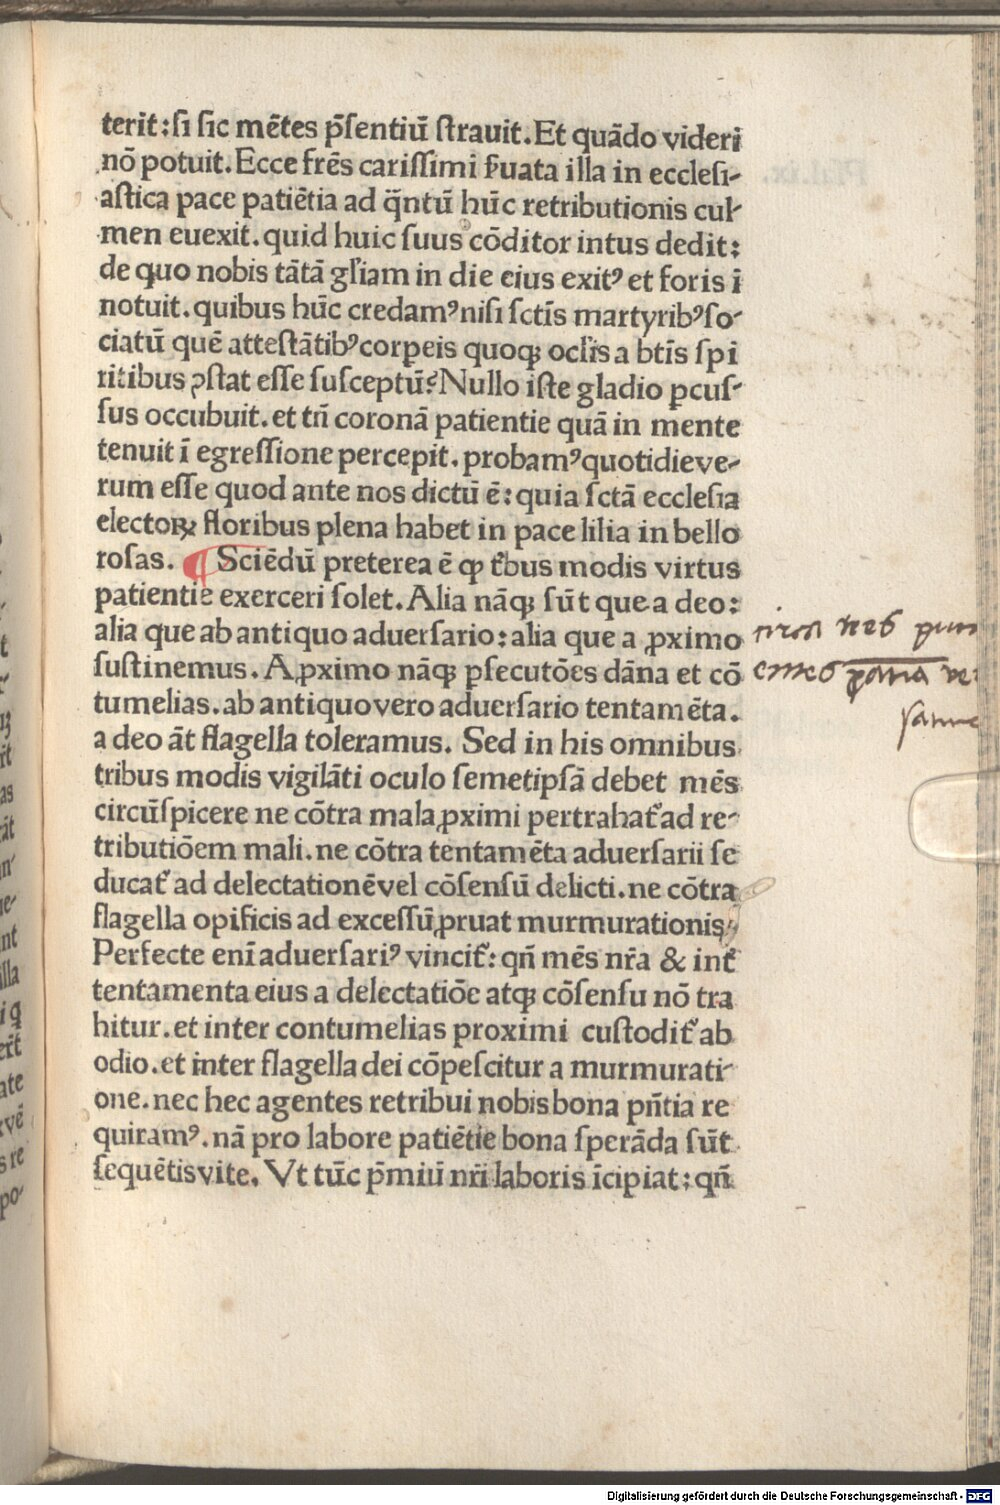 terit:ſi ſic mẽtes p̃ſentiũ ſtrauit. Et quãdo videri
nõ potuit. Ecce frẽs cariſſimi ẜuata illa in eccleſi-
aſtica pace patiẽtia ad q̃ntũ hũc retributionis cul-
men euexit. quid huic ſuus cõditor intus dedit:
de quo nobis tãtã gl'iam in die eius exitꝰ et foris ĩ
notuit. quibus hũc credamꝰ niſi ſctĩs martyribꝰ ſo-
ciatũ quẽ atteſtãtibꝰ corpeis quoqꝫ ocl'is a btĩs ſpi
ritibus ꝯſtat eſſe ſuſceptũ? Nullo iſte gladio ꝑcuſ-
ſus occubuit. et tñ coronã patientie quã in mente
tenuit ĩ egreſſione percepit. probamꝰ quotidie ve-
rum eſſe quod ante nos dictũ ẽ: quia ſctã eccleſia
electoꝝ floribus plena habet in pace lilia in bello
roſas. ¶ Sciẽdũ preterea ẽ ꝙ t'bus modis virtus
patientie exerceri ſolet. Alia nãqꝫ ſũt que a deo:
alia que ab antiquo aduerſario: alia que a ꝓximo
ſuſtinemus. A ꝓximo nãqꝫ ꝑſecutões dãna et cõ
tumelias. ab antiquo vero aduerſario tentamẽta.
a deo ãt flagella toleramus. Sed in his omnibus
tribus modis vigilãti oculo ſemetipſã debet mẽs
circũſpicere ne cõtra mala ꝓximi pertrahat' ad re-
tributiõem mali. ne cõtra tentamẽta aduerſarii ſe
ducat' ad delectationẽ vel cõſenſũ delicti. ne cõtra
flagella opificis ad exceſſũ ꝓruat murmurationis
Perfecte enĩ aduerſariꝰ vincit': qñ mẽs nr̃a & int'
tentamenta eius a delectatiõe atqꝫ cõſenſu nõ tra
hitur. et inter contumelias proximi cuſtodit' ab
odio. et inter flagella dei cõpeſcitur a murmurati-
one. nec hec agentes retribui nobis bona pñtia re
quiramꝰ. nã pro labore patiẽtie bona ſperãda ſũt
ſequẽtis vite. Vt tũc p̃miũ nr̃i laboris ĩcipiat: qñ
Digitalisierung gefördert durch die Deutsche Forschungsgemeinschaft - DFG